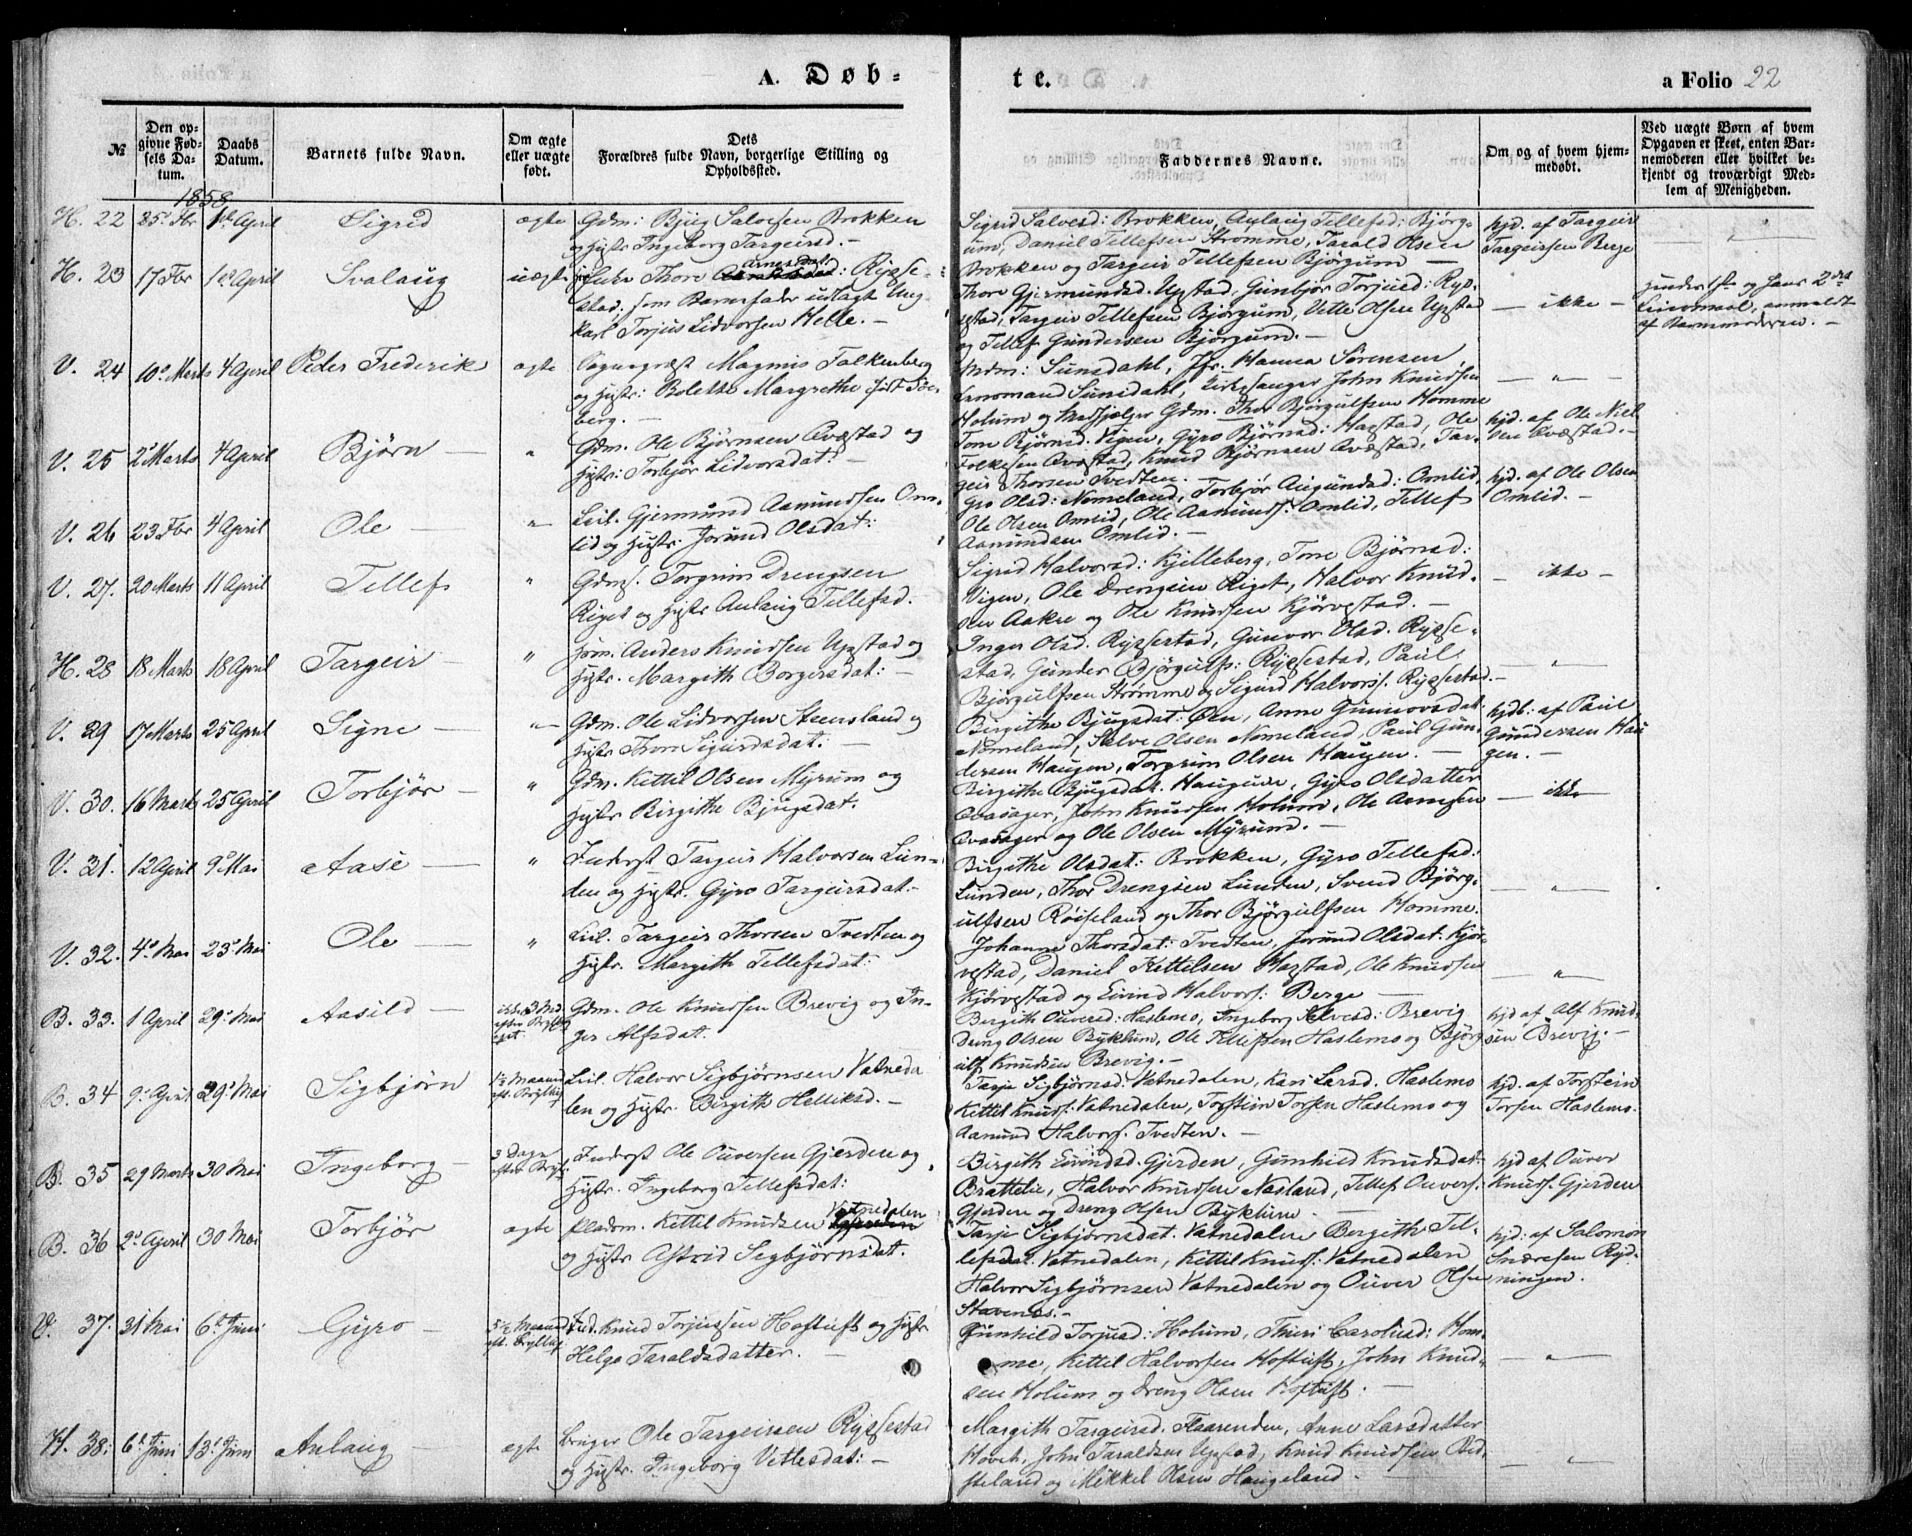 A. Døb-
te.
a Folio 22
№
Den op-
givne Fød-
sels Da-
tum.
Daabs
Datum.
Barnets fulde Navn.
Om ægte
eller uægte
født.
Dets
Forældres fulde Navn, borgerlige Stilling og
Opholdssted.
Faddernes Navne.
Om og af hvem hjem-
medøbt.
Ved uægte Børn af hvem
Opgaven er skeet, enten Bar-
nemoderen eller hvilket be-
kjendt og troværdigt Med-
lem af Menigheden.
1858
H. 22 25de Fbr 1ste April Sigrid ægte Gdm: Bjug Salvesen Brokken
og Hustr. Ingeborg Targeirsd. —
Sigrid Salvesd: Brokken, Aulaug Tellefsd: Bjørg-
um, Daniel Tellefsen Strømme, Tarald Olsen
Brokken og Targeir Tellefsen Bjørgum —
hjd. af Targeir
Targeirsen Berge
"
H. 23 17 Fbr 1ste April Svalaug uægte Thore Arnesdat: Rysse-
stad; som Barnefader udlagt Ung-
karl Torjus Lidvorsen Helle. —
Thore Gjermundsd. Upstad, Gunbjør Torjusd: Rys-
sestad, Targeir Tellefsen Bjørgum, Vette Olsen Upstad
og Tellef Gundersen Bjørgum. —
— ikke —
hendes 1ste og hans 2det
Leiermaal, anmeldt
af Barnemoderen. —
V. 24 10de Marts 4 April Peder Frederik ægte Sognepræst Magnus Falkenberg
og Hustr: Bolette Margrethe født See-
berg. —
Mdm: Sunsdahl, Jfr. Hanna Sørensen,
Lensmand Sunsdahl, Kirkesanger John Knudsen
Holum og Medhjælper Gdm. Thor Bjørgulfsen Homme
— " —
V. 25 2de Marts 4 April Bjørn — " Gdm. Ole Bjørnsen Qvæstad og
Hustr: Torbjør Lidvorsdat: —
Tone Bjørnsd. Vigen, Gyro Bjørnsd: Hagestad, Ole
Folkesen Qvæstad, Knud Bjørnsen Qvæstad, Tar-
geir Thorsen Tvedten. —
hjd. af Ole Niel-
sen Qvæstad. —
V. 26 23 Fbr 4 April Ole — " Leil. Gjermund Aamundsen Om-
lid og Hustr: Jorund Olsdat:
Gro Olsd: Nomeland, Torbjør Augundsd: Omlid,
Ole Olsen Omlid, Ole Aamunds: Omlid, Tellef
Aanundsen Omlid. —
hjd. af Ole Olsen
Omlid. —
V. 27. 20 Marts 11 April Tellef " Gdm. Torgrim Drengsen
Riget og Hustr Aulaug Tellefsd.
Sigrid Halvorsd: Kjelleberg, Tone Bjørnsd:
Vigen, Ole Drengsen Riget, Halvor Knud-
sen Aakre og Ole Knudsen Kjørvestad. —
— ikke —
H. 28 18 Marts 18 April Targeir — " Anders Knudsen Upstad og
Hustr. Margith Borgersdat: —
Inger Olsd. Ryssestad, Gunvor Olsd. Rysse-
stad, Gunder Bjørgulfs: Ryssestad, Paul
Bjørgulfsen Strømme og Sigurd Halvors. Ryssestad. —
"
V. 29 17 Marts 25 April Signe — " Gdm. Ole Lidvorsen Steensland og
Hustr Thone Sigurdsdat. —
Birgithe Bjugsdat: Øen, Anne Gunnovsdat
Nomeland, Salve Olsen Nomeland, Paul Gun-
dersen Haugen, Torgrim Olsen Haugen. —
hjdb: af Paul
Gundersen Hau-
gen. —
V. 30. 16 Marts 25 April Torbjør — " Gdm. Kettil Olsen Myrum og
Hustr Birgithe Bjugsdat.
Birgithe Bjugsdat. Haugene, Gyro Olsdatter
Qvasager, John Knudsen Holum, Ole Arnesen
Qvasager og Ole Olsen Myrum. —
— ikke
V. 31. 12 April 9de Mai Aase — " Inderst Targeir Halvorsen Lun-
den og Hustr. Gyro Targeirsdat: —
Birgithe Olsdat: Brokken, Gyro Tellefsd:
Lunden, Thor Drengsen Lunden, Svend Bjørg-
ulfsen Røiseland og Thor Bjørgulfsen Homme.
"
V. 32. 4de Mai 23de Mai Ole — " Leil. Targeir Thorsen Tvedten og
Hustr. Margith Tellefsdat:
Johanne Thorsdat: Tvedten, Jorund Olsdat: Kjør-
vestad, Daniel Kettilsen Hagstad, Ole Knudsen
Kjørvestad og Eivind Halvors: Berge —
"
B. 33. 1 April 29de Mai Aasild — Gdm. Ole Knudsen Brevig og In-
ger Alfsdat:
Bergith Ouversd: Haslemo, Ingeborg Salvesd: Brevig
Dreng Olsen Byklum, Ole Tellefsen Haslemo og Bjørg-
ulf Knudsen Brevig. —
hjd af Alf Knud-
sen Brevig. —
B. 34 9de April 29de Mai Sigbjørn Leil. Halvor Sigbjørnsen Vatneda
len og Hustr. Birgith Helliksd. —
Tarje Sigbjørnsd: Vatnedalen, Kari Larsd. Haslemo
Kettil Knuds: Vatnedalen, Torstein Torsen Haslemo og
Aamund Halvors. Tvedten. —
hjd. af Torstein
Torsen Haslemo.
B. 35 29 Marts 30 Mai Ingeborg — 3 Dage
efter Bryl: Inderst Ole Ouversen Gjerden og
Hustr. Ingeborg Tellefsdat:
Birgith Eivindsd. Gjerden, Gunhild Knudsdat:
Brattelie, Halvor Knudsen Nasland, Tellef Ouvers.
Gjerden og Dreng Olsen Byklum. —
hjd af Ouver
Knuds. Gjerden
B. 36 2de April 30 Mai Torbjør ægte Pladsm. Kettil Knudsen Vatnedalen
og Hustr. Astrid Sigbjørnsdat.
Tarje Sigbjørnsdat. Vatnedalen Bergith Tel-
lefsdat. Vatnedalen, Kettil Knuds: Vatnedalen
Halvor Sigbjørnsen Vatnedalen og Ouver Olsen
Stavenes. —
hjd: af Salomon
Sneresen Ryd-
ningen.
V. 37. 31 Mai 6te Juni Gyro — 5½ Maaned
eft. Bryllup Ind. Knud Torjussen Hoftuft og Hustr
Helge Taraldsdatter. —
Gunhild Torjusd: Holum, Thuri Carolusd: Hom-
me, Kettil Halvorsen Hoftuft, John Knud-
sen Holum og Dreng Olsen Hoftuft. —
— " —
H. 38: 6te Juni 13de Juni Aulaug — ægte bruger Ole Targeirsen Ryssestad
og Hustr. Ingeborg Vettesdat: —
Margith Targeirsd. Flaarenden, Anne Larsdatter
Hovet, John Taraldsen Upstad, Knud Knudsen
og Mikkel Olsen Haugeland —
"